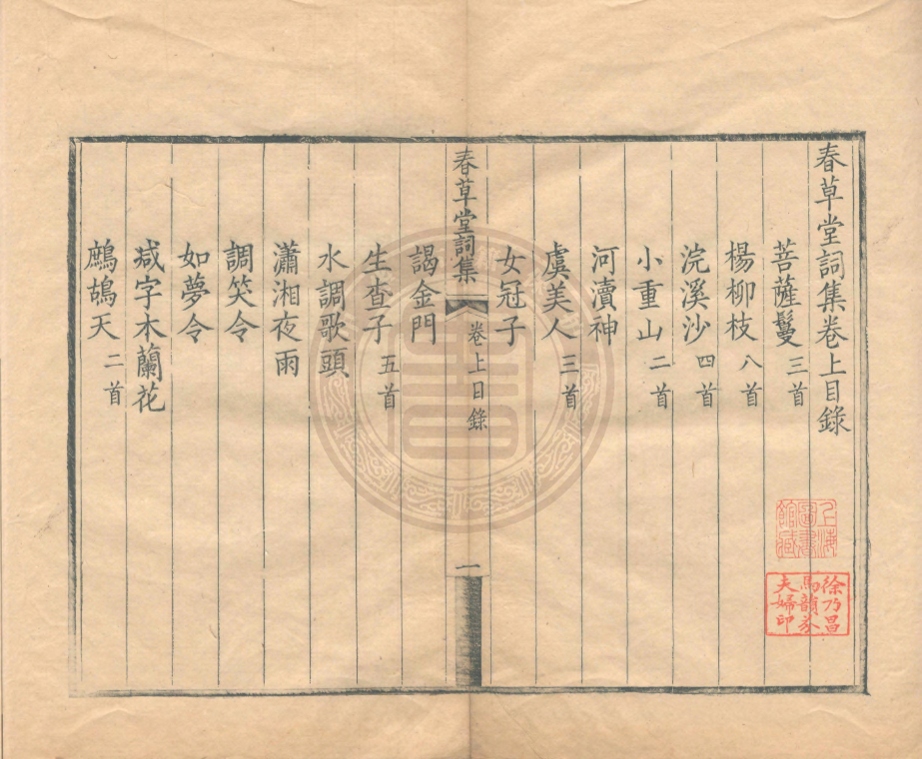 春草堂詞集卷上目錄
菩薩鬘三首
楊柳枝八首
浣溪沙四首
小重山二首
河瀆神
虞美人三首
女冠子
春草堂詞集 卷上目錄 一
謁金門
生查子五首
水調歌頭
瀟湘夜雨
調笑令
如夢令
減字木蘭花
鷓鴣天二首
上海圖書館藏
徐乃昌馬韻芬夫婦印
書